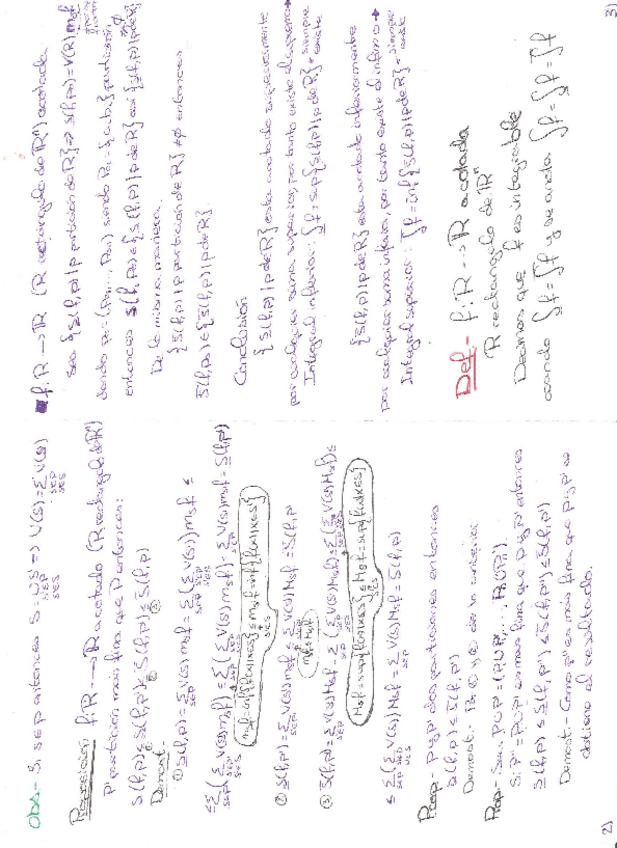 Obs.- Si S∈P entonces S = ∪S' => V(S) = Σ V(S')
Proposición f: R → R acotada (R rectángulo de Rⁿ)
P' partición más fina que P entonces:
s(f,P) ≤ s(f,P') ≤ S(f,P') ≤ S(f,P)
Demost.
① s(f,P) = Σ V(S) m_S f = Σ (Σ V(S')) m_S f =
= Σ (Σ V(S') m_S f) ≤ Σ (Σ V(S') m_S' f) = Σ V(S') m_S' f = s(f,P')
m_S f = inf{f(x)|x∈S} ≤ m_S' f = inf{f(x)|x∈S'}
② s(f,P') = Σ V(S') m_S' f ≤ Σ V(S') M_S' f = S(f,P')
m_S' f ≤ M_S' f
③ S(f,P') = Σ V(S') M_S' f = Σ (Σ V(S') M_S' f) ≤
M_S' f = sup{f(x)|x∈S'} ≤ M_S f = sup{f(x)|x∈S}
≤ Σ (Σ V(S')) M_S f = Σ V(S) M_S f = S(f,P)
Prop.- P y P' dos particiones entonces
s(f,P) ≤ S(f,P')
Demost.-
Prop.- Sean P∪P' = (P₁∪P₁', ..., Pₙ∪Pₙ').
Si P'' = P∪P' es más fina que P y P' entonces
s(f,P) ≤ s(f,P'') ≤ S(f,P'') ≤ S(f,P')
Demost.- Como P'' es más fina que P y P' se
obtiene el resultado.
2)
f: R → R (R rectángulo de Rⁿ) acotada
Sea {s(f,P)|P partición de R} => s(f,P₀) = V(R) m_R f
donde P₀ = (P₀₁, ..., P₀ₙ) siendo P₀ᵢ = {aᵢ, bᵢ} partición,
entonces s(f,P₀) ∈ {s(f,P)|P de R} así {s(f,P)|P de R} ≠ ∅
De la misma manera
{S(f,P)|P partición de R} ≠ ∅ entonces
S(f,P₀) ∈ {S(f,P)|P de R}.
Conclusión
{s(f,P)|P de R} está acotado superiormente
por cualquier suma superior, por tanto existe el supremo
Integral inferior: ∫f = sup{s(f,P)|P de R} siempre existe
{S(f,P)|P de R} está acotado inferiormente
por cualquier suma inferior, por tanto existe el ínfimo
Integral superior: ∫f = inf{S(f,P)|P de R} siempre existe
Def.- f: R → R acotada
R rectángulo de Rⁿ
Decimos que f es integrable
cuando ∫f = ∫f y se anota ∫f = ∫f = ∫f
3)